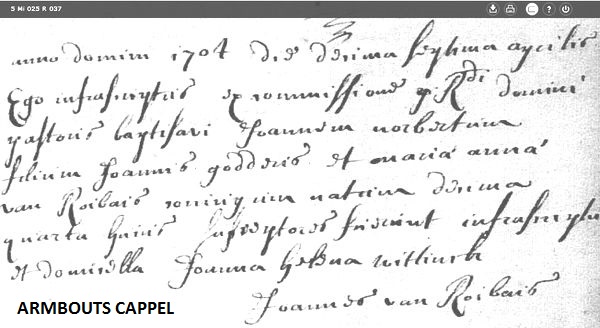 5 Mi 025 R 037
anno domini 1704 die decima septima aprilis
Ego infrascriptus ex commissione p. Rdi domini
pastoris baptisavi Joannem norbertum
filium Joannis godderis et maria anna
van Roibais coniugum natum decima
quarta huius susceptores fuerunt infrascriptus
et domicella Joanna helena wittinck
Joannes van Roibais
ARMBOUTS CAPPEL